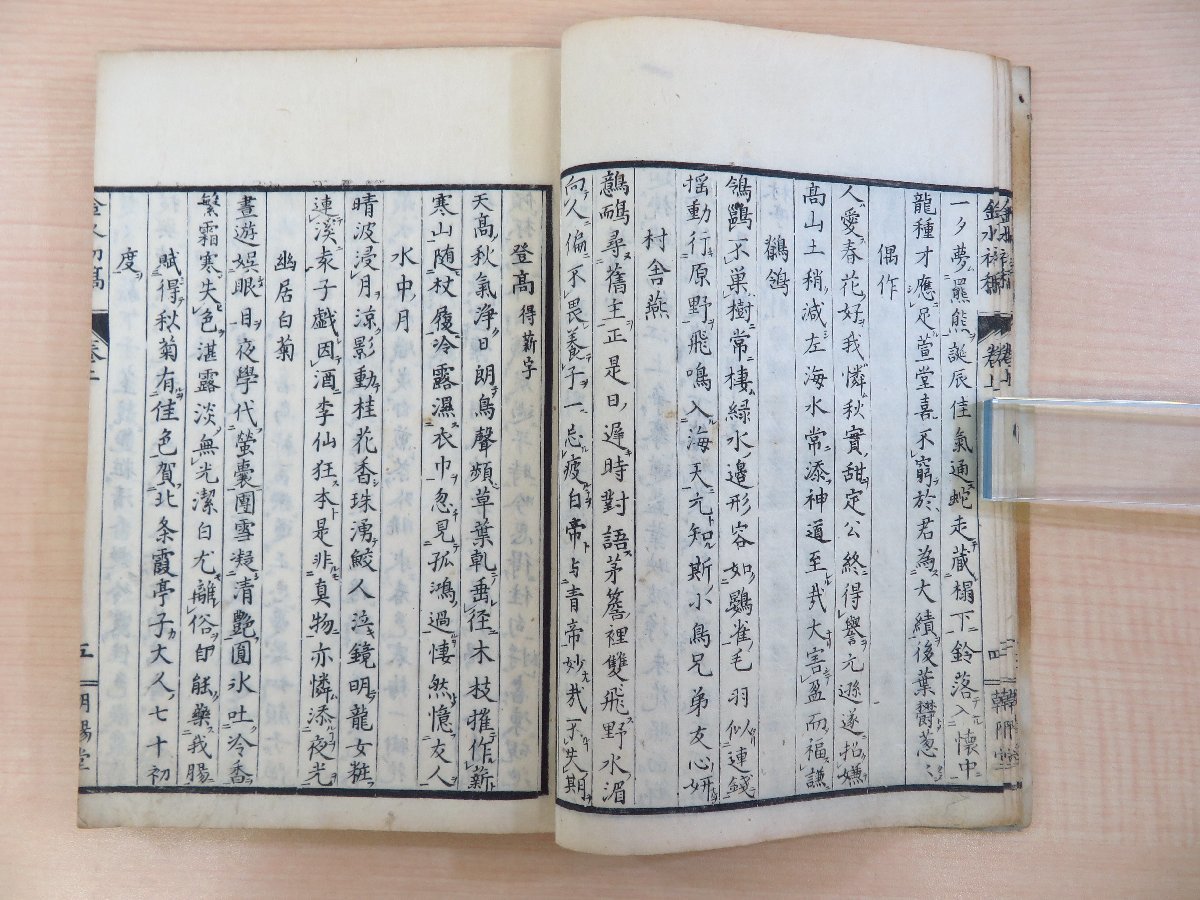 一夕夢羆熊誕辰佳氣通蛇走蔵榻下鈴落入懐中
龍種才應足萱堂喜不窮於君為大績後葉欝葱〻
偶作
人愛春花好我憐秋實甜定公終得譽元遜遂招嫌
髙山土稍減左海水常添神道至哉大害盈而福謙
鶺鴒
鴒鷗不巣樹常棲緑水邉形容如鷃雀毛羽似連錢
揺動行原野飛鳴入海天元知斯小鳥兄弟友心妍
村舎燕
鷾鴯尋舊主正是日遅時對語茅簷裡雙飛野水湄
向人偏不畏養子一忘疲白帝与青帝妙哉不失期
登髙 得薪字
天髙秋氣浄日朗鳥聲頻草葉乾垂径木枝摧作薪
寒山随杖屐冷露濕衣巾忽見孤鴻過悽然憶友人
水中月
晴波浸月涼影動桂花香珠湧鮫人浜鏡明龍女粧
連溪表子戯因酒李仙狂本是非真物亦憐添夜光
幽居白菊
晝遊娯眼目夜學代螢嚢團雪凝清艶圓氷吐冷香
繁霜寒失色湛露淡無光潔白尤離俗印能藥我腸
賦得秋菊有佳色賀北条霞亭子大人七十初
度